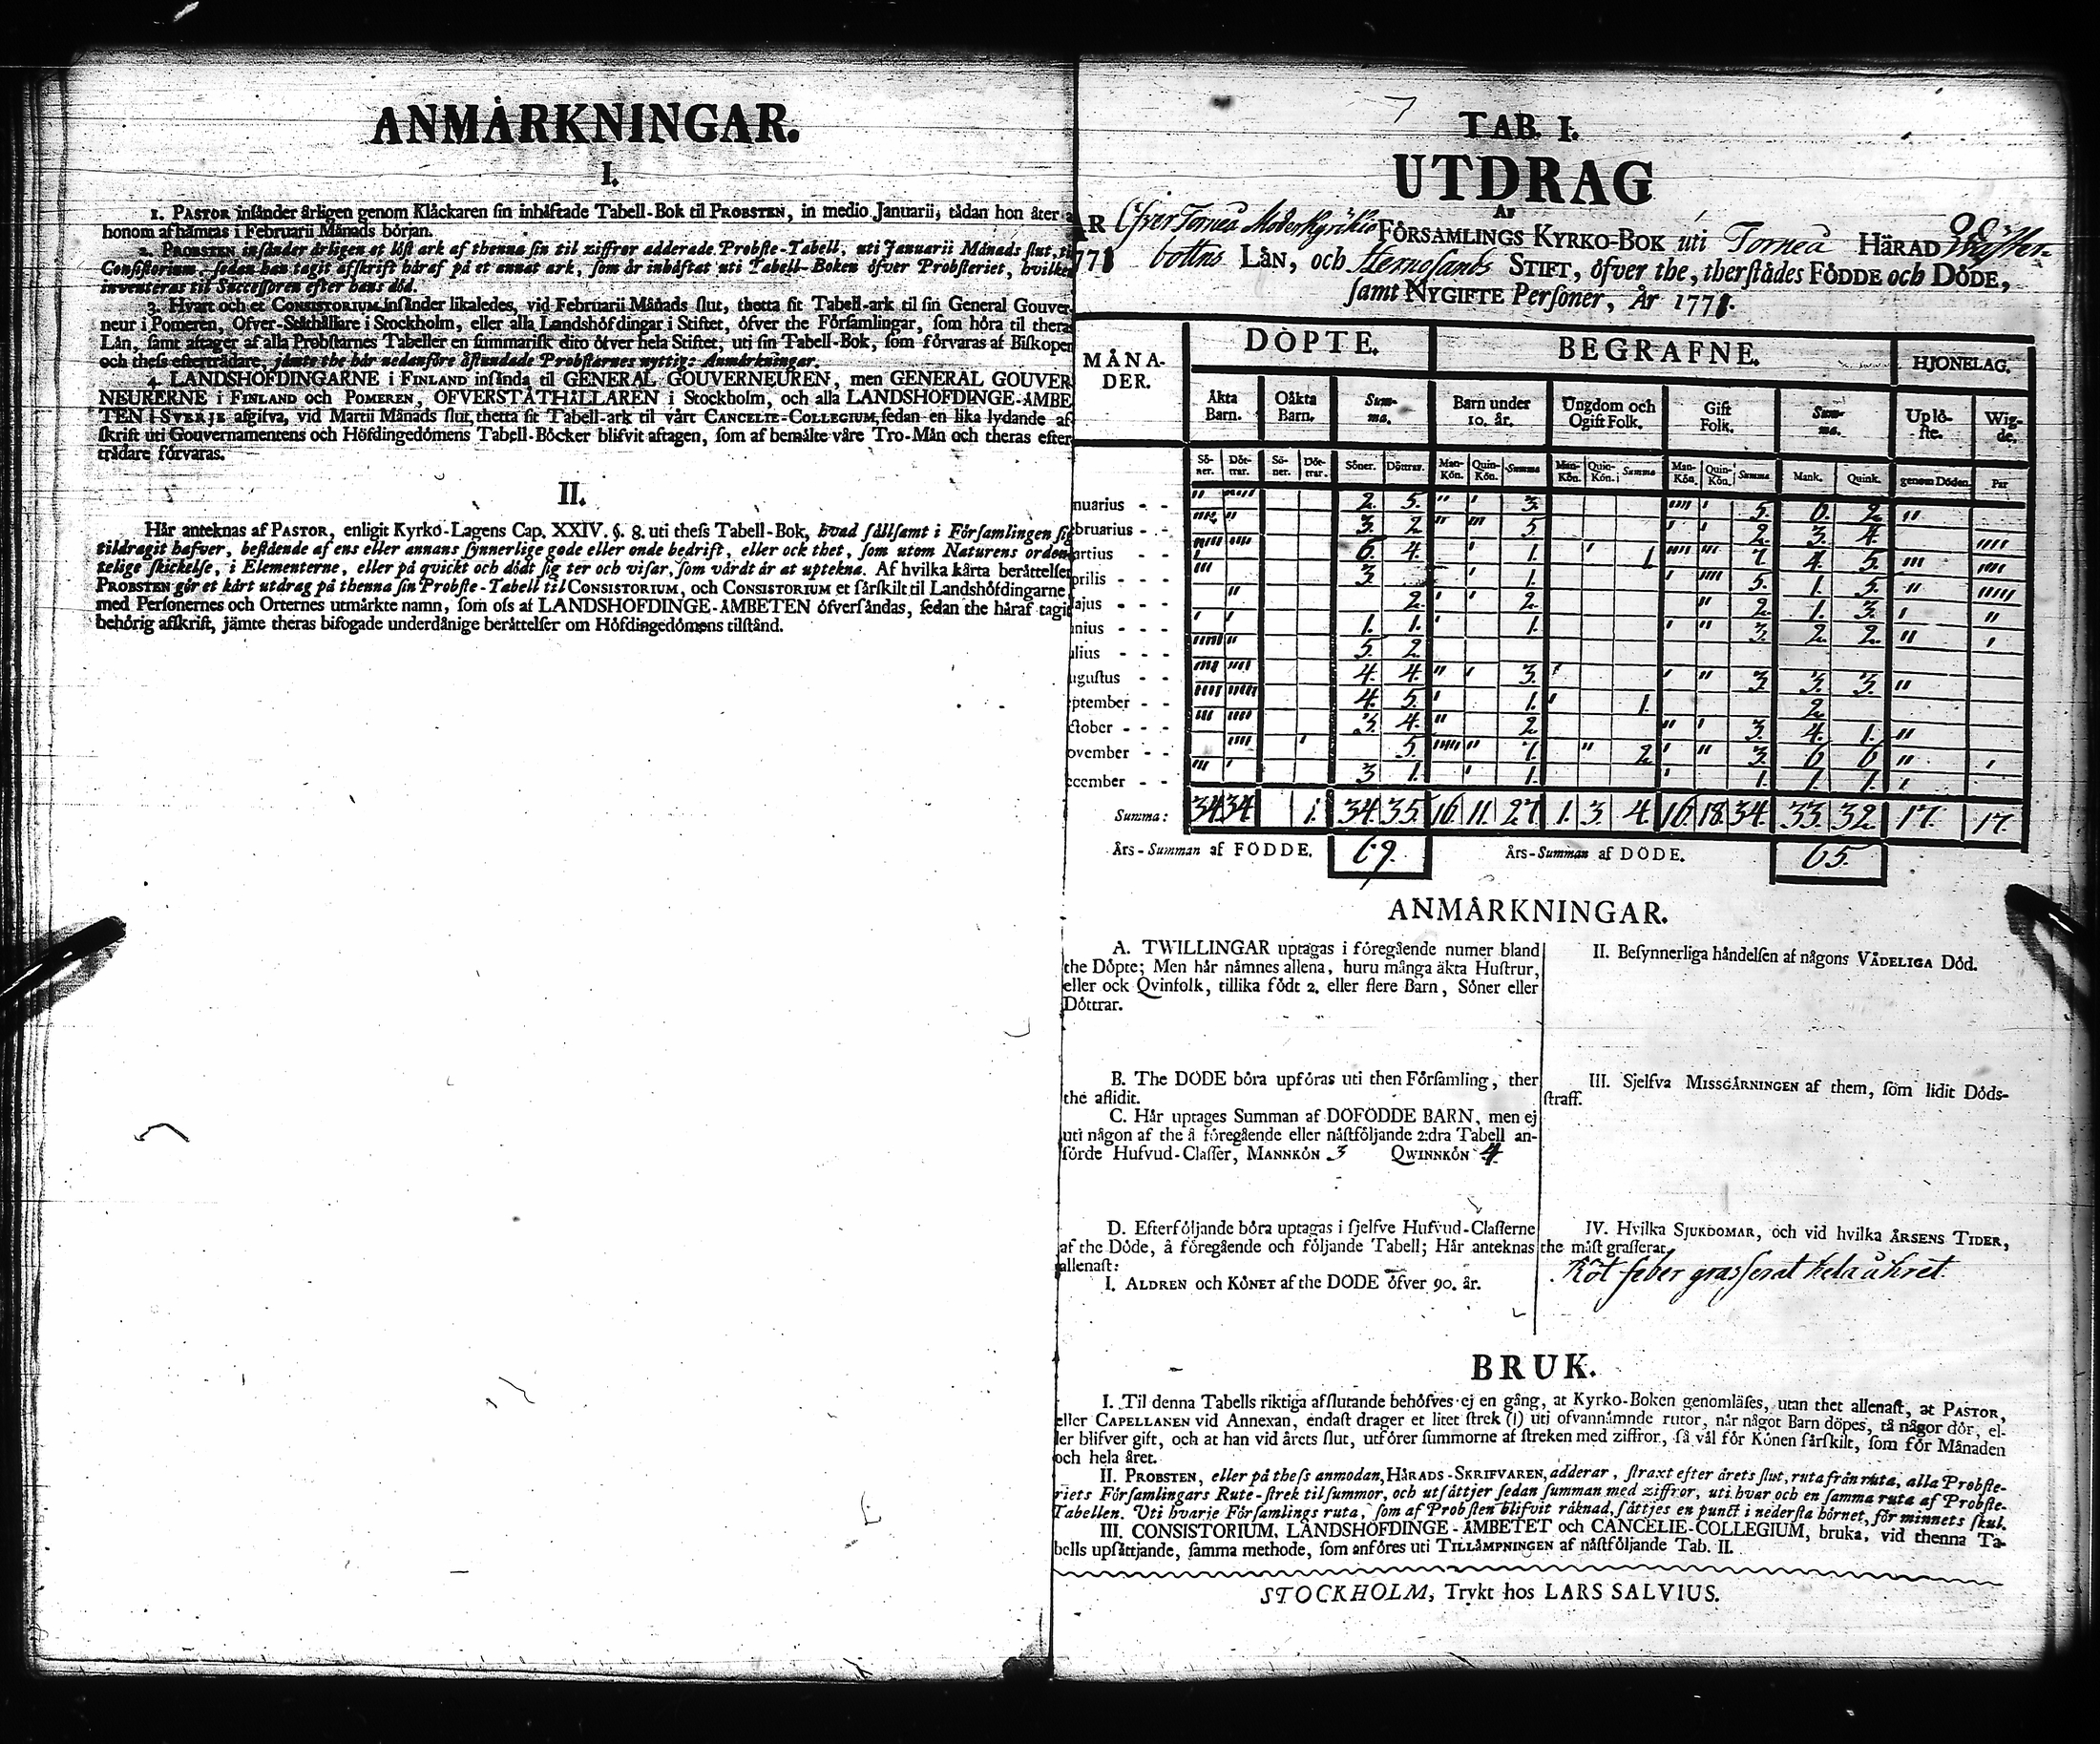 ANMÅRKNINGAR.
I.
1. PASTOR insånder årligen genom Klåckaren sin inhåftade Tabell-Bok til PROBSTEN, in medio Januarii, tådan hon åter a
honom afhåmtas i Februarii Månads början.
2. PROBSTEN insånder årligen et löst ark af thenna sin til ziffror adderade Probste-Tabell, uti Januarii Månads slut, til
Consistorium, sedan han tagit afskrift håraf på et annat ark, som år inhåftat uti Tabell-Boken öfver Probsteriet, hvilken
inventeras til Successoren efter hans död.
3. Hvart och et CONSISTORIUM insånder likaledes, vid Februarii Månads slut, thetta sit Tabell-ark til sin General Gouver
neur i Pomeren, Öfver-Ståthållare i Stockholm, eller alla Landshöfdingar i Stiftet, öfver the Församlingar, som höra til thera
Lån, samt aftager af alla Probstarnes Tabeller en summarisk dito öfver hela Stiftet, uti sin Tabell-Bok, som förvaras af Biskopen
och thess eftertrådare, jämte the hår nedanföre åstundade Probstarnes nyttig: Anmårkningar.
4. LANDSHÖFDINGARNE i FINLAND insånda til GENERAL GOUVERNEUREN, men GENERAL GOUVER
NEURERNE i FINLAND och POMEREN, ÖFVERSTÅTHÅLLAREN i Stockholm, och alla LANDSHÖFDINGE-ÅMBE
TEN i SVERJE afgifva, vid Martii Månads slut, thetta sit Tabell-ark til vårt CANCELIE-COLLEGIUM, sedan en lika lydande af
skrift uti Gouvernamentens och Höfdingedömens Tabell-Böcker blifvit aftagen, som af bemålte våre Tro-Mån och theras efter
trådare förvaras.
II.
Hår anteknas af PASTOR, enligit Kyrko-Lagens Cap. XXIV. §. 8. uti thess Tabell-Bok, hvad sållsamt i Församlingen sig
tildragit hafver, bestående af ens eller annans synnerlige gode eller onde bedrift, eller ock thet, som utom Naturens orden
telige skickelse, i Elementerne, eller på quickt och dödt sig ter och visar, som vårdt år at uptekna. Af hvilka kårta beråttelser
PROBSTEN gör et kårt utdrag på thenna sin Probste-Tabell til CONSISTORIUM, och CONSISTORIUM et sårskilt til Landshöfdingarne,
med Personernes och Orternes utmårkte namn, som oss af LANDSHÖFDINGE-ÅMBETEN öfversåndas, sedan the håraf tagit
behörig afskrift, jämte theras bifogade underdånige beråttelser om Höfdingedömens tilstånd.
TAB. I.
UTDRAG
AF
ÅR Öfver Torneå Moderkyrkio FÖRSAMLINGS KYRKO-BOK uti Torneå HÄRAD Wäster-
1778 bottns LÄN, och Hernösands STIFT, öfver the, therstådes FÖDDE och DÖDE,
samt NYGIFTE Personer, År 1778.
MÅNA-DER. DÖPTE. BEGRAFNE. HJONELAG.
Åkta Barn. Oåkta Barn. Sum-ma. Barn under 10. år. Ungdom och Ogift Folk. Gift Folk. Sum-ma. Uplö-ste. Wig-de.
Sö-ner. Döt-trar. Sö-ner. Döt-trar. Söner. Döttrar. Man-Kön. Quin-Kön. Summa Man-Kön. Quin-Kön. Summa Man-Kön. Quin-Kön. Summa Mank. Quink. genom Döden. Par
nuarius - - '' ''''' 2. 5. '' ' 3. '''' ' 5. 6. 2. ''
ebruarius - - ''' '' 3. 2. '' ''' 5 ' ' 2. 3. 4. ''''
artius - - '''''' '''' 6. 4. ' 1. ' 1 '''' ''' 7. 4. 5. ''' ''''
prilis - - ''' 3. ' 1. ' '''' 5. 1. 5. '' '''''
ajus - - - '' 2. ' ' 2. '' 2. 1. 3. ' ''
nius - - - ' ' 1. 1. ' 1. ' '' 3. 2. 2. '' '
ulius - - - ''''' '' 5. 2.
ugustus - - '''' '''' 4. 4. '' ' 3. ' ' '' 3. 3. 3. ''
eptember - - '''' ''''' 4. 5. ' 1. ' 1. 2.
ctober - - - ''' '''' 3. 4. '' 2. '' ' 3. 4. 1. ''
ovember - - '''' ' 5. ''''' '' 7. '' 2. ' '' 3. 6 6 '' '
ecember - - ''' ' 3 1. ' 1. ' 1. 1. 1. '
Summa: 34 34 1. 34 35. 16. 11. 27. 1. 3. 4. 16 18 34. 33. 32. 17. 17.
Års-Summan af FÖDDE. 69. Års-Summan af DÖDE. 65.
ANMÅRKNINGAR.
A. TWILLINGAR uptagas i föregående numer bland
the Döpte; Men hår nåmnes allena, huru många åkta Hustrur,
eller ock Qvinfolk, tillika födt 2. eller flere Barn, Söner eller
Döttrar.
B. The DÖDE böra upföras uti then Församling, ther
the aflidit.
C. Hår uptages Summan af DÖFÖDDE BARN, men ej
uti någon af the å föregående eller nåstföljande 2:dra Tabell an-
förde Hufvud-Classer, MANNKÖN 3 QWINNKÖN 4.
D. Efterföljande böra uptagas i sjelfve Hufvud-Classerne
af the Döde, å föregående och följande Tabell; Hår anteknas
allenast:
I. ÅLDREN och KÖNET af the DÖDE öfver 90. år.
II. Besynnerliga håndelsen af någons VÅDELIGA Död.
III. Sjelfva MISSGÅRNINGEN af them, som lidit Döds-
straff.
IV. Hvilka SJUKDOMAR, och vid hvilka ÅRSENS TIDER,
the måst grasserat.
Röt feber grasserat hela åhret.
BRUK.
I. Til denna Tabells riktiga afslutande behöfves ej en gång, at Kyrko-Boken genomläses, utan thet allenast, at PASTOR,
eller CAPELLANEN vid Annexan, endast drager et litet strek (|) uti ofvannåmnde rutor, når något Barn döpes, tå någor dör, el-
ler blifver gift, och at han vid årets slut, utförer summorne af streken med ziffror, så vål för Könen sårskilt, som för Månaden
och hela året.
II. PROBSTEN, eller på thess anmodan, HÅRADS-SKRIFVAREN, adderar, straxt efter årets slut, ruta från ruta, alla Probste-
riets Församlingars Rute-strek til summor, och utsåttjer sedan summan med ziffror, uti hvar och en samma ruta af Probste-
Tabellen. Uti hvarje Församlings ruta, som af Probsten blifvit råknad, såttjes en punct i nedersta hörnet, för minnets skul.
III. CONSISTORIUM, LANDSHÖFDINGE-ÅMBETET och CANCELIE-COLLEGIUM, bruka, vid thenna Ta-
bells upsåttjande, samma methode, som anföres uti TILLÅMPNINGEN af nåstföljande Tab. II.
STOCKHOLM, Trykt hos LARS SALVIUS.